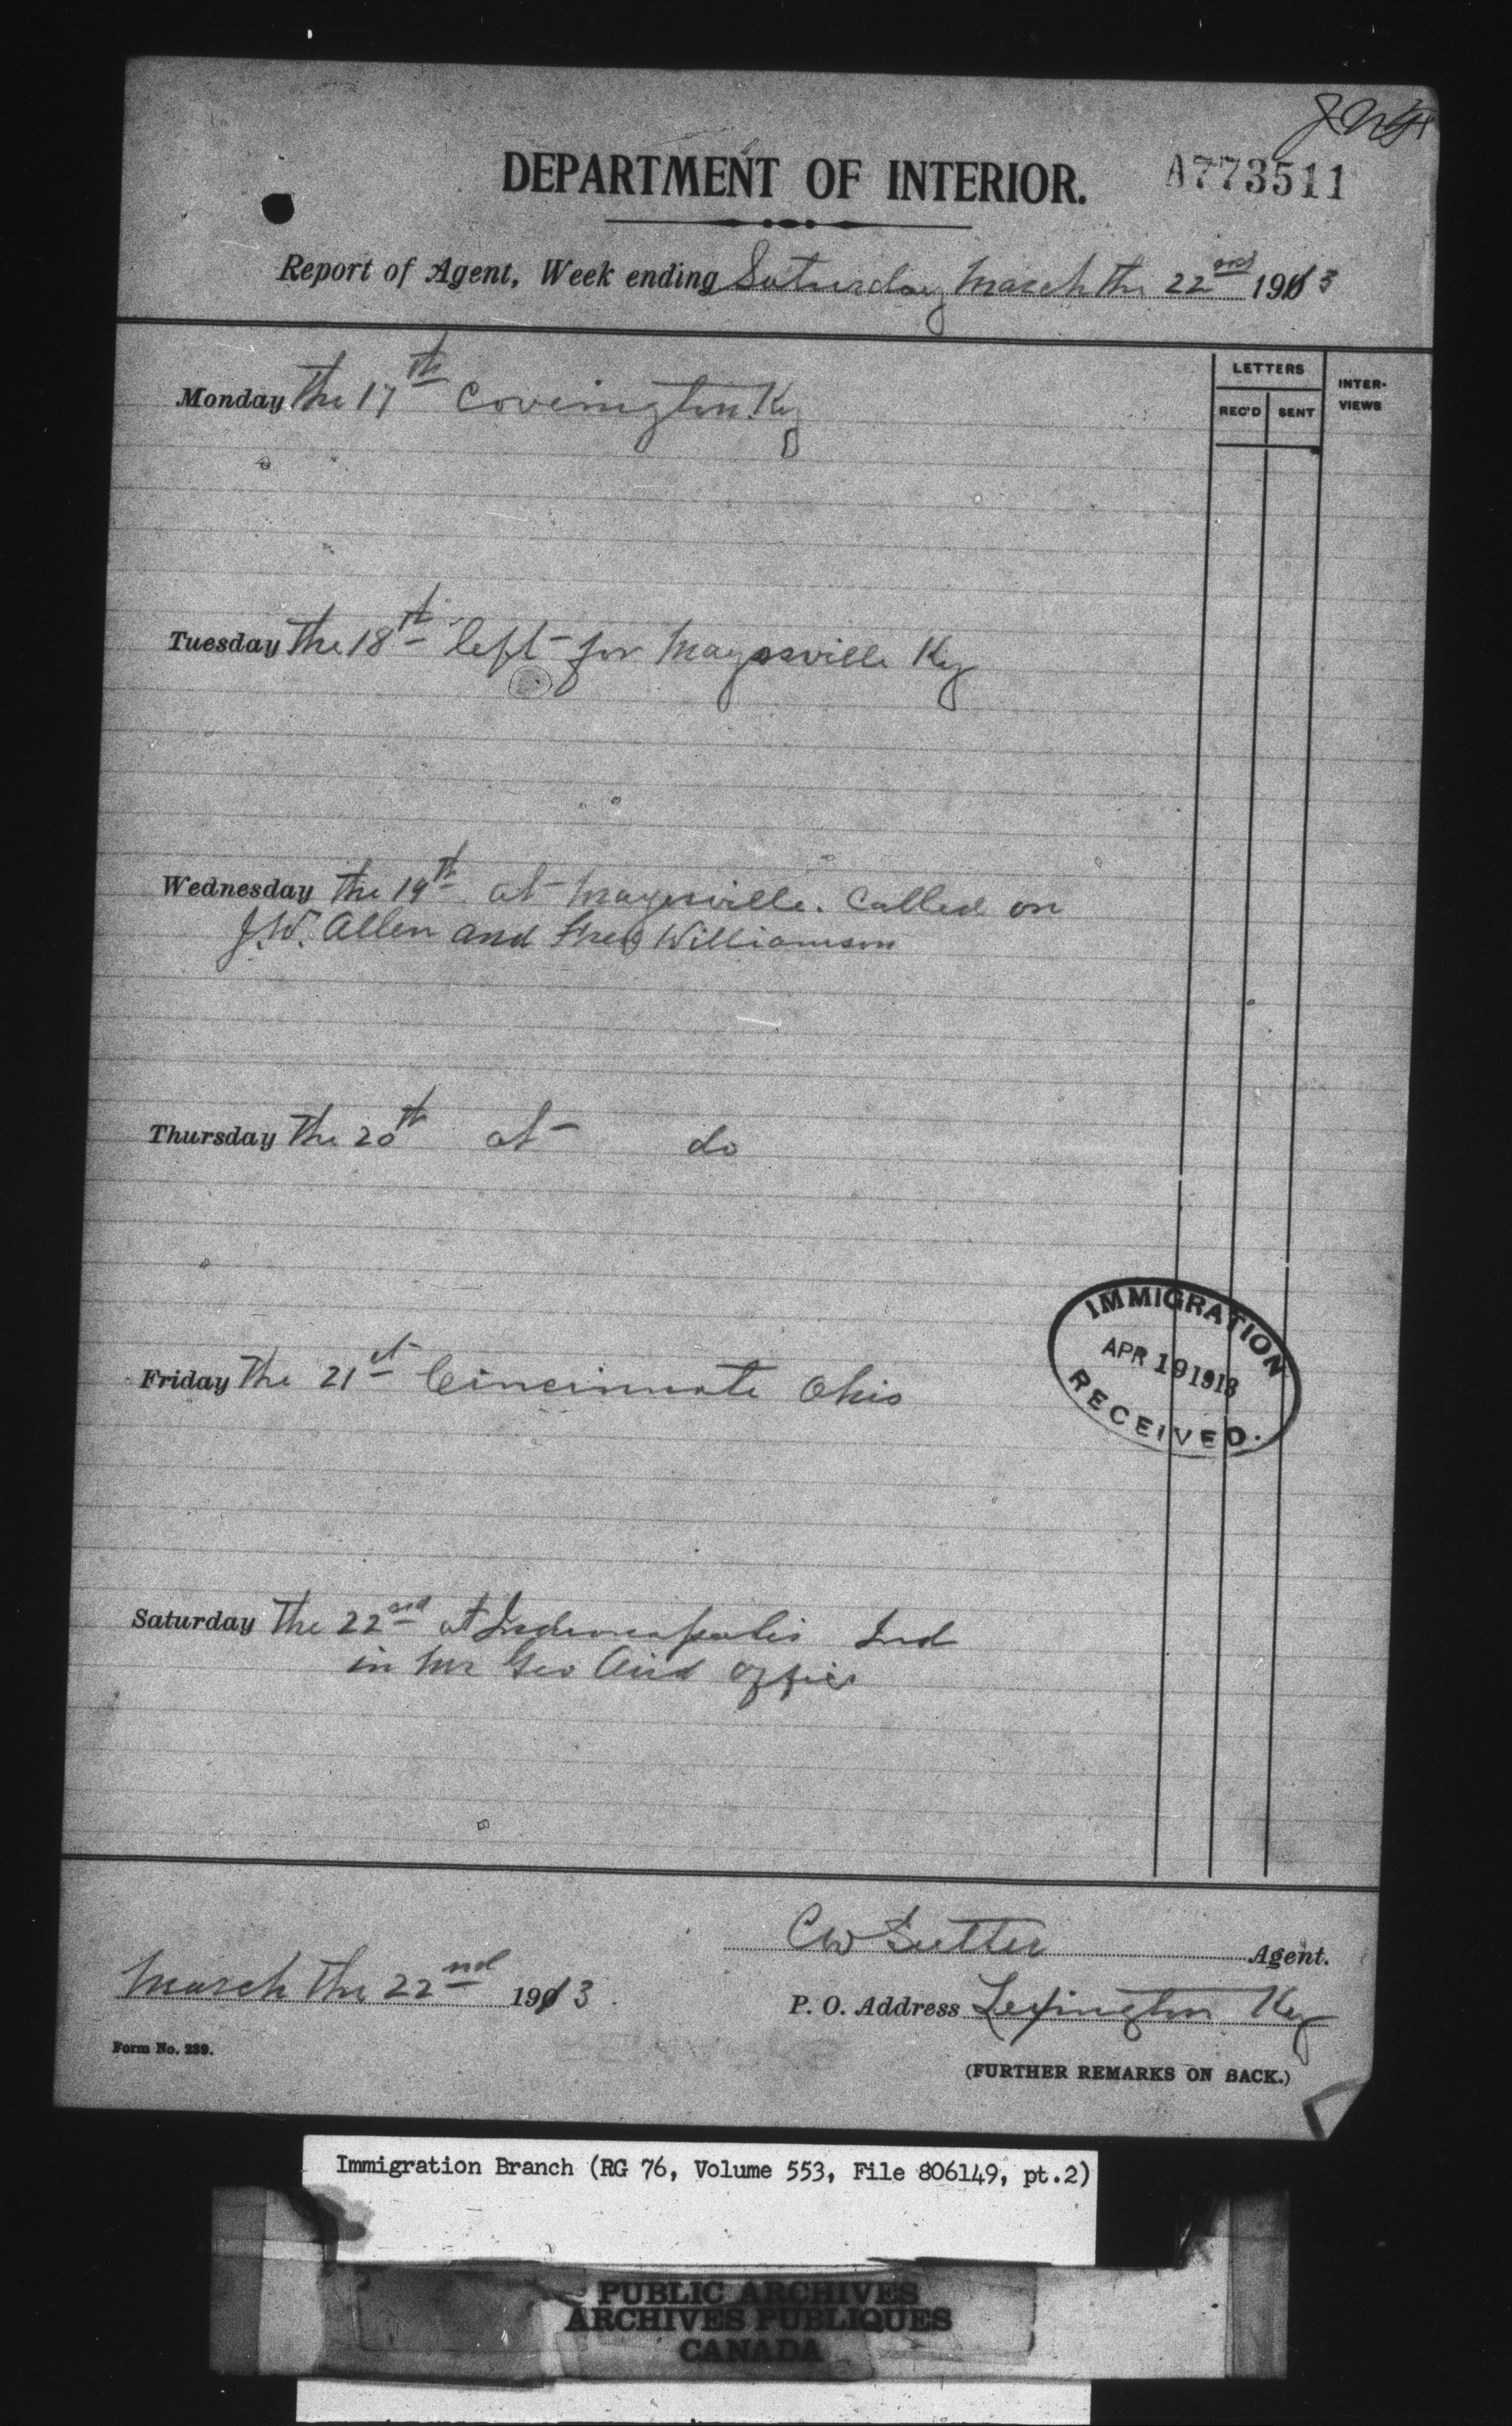 DEPARTMENT OF INTERIOR.
A773511
Report of Agent, Week ending Saturday March the 22nd 1913
LETTERS
REC'D SENT
INTER-
VIEWS
Monday the 17th Covington Ky
Tuesday the 18th left for Maysville Ky
Wednesday the 19th at Maysville. Called on
J.W. Allen and Fred Williamson
Thursday the 20th at do
IMMIGRATION
APR 19 1913
RECEIVED.
Friday the 21st Cincinnate Ohio
Saturday the 22nd at Indianapolis Ind
in Mr Geo Aird office
CW Sutter Agent.
March the 22nd 1913
P. O. Address Lexington Ky
Form No. 239.
(FURTHER REMARKS ON BACK.)
Immigration Branch (RG 76, Volume 553, File 806149, pt.2)
PUBLIC ARCHIVES
ARCHIVES PUBLIQUES
CANADA